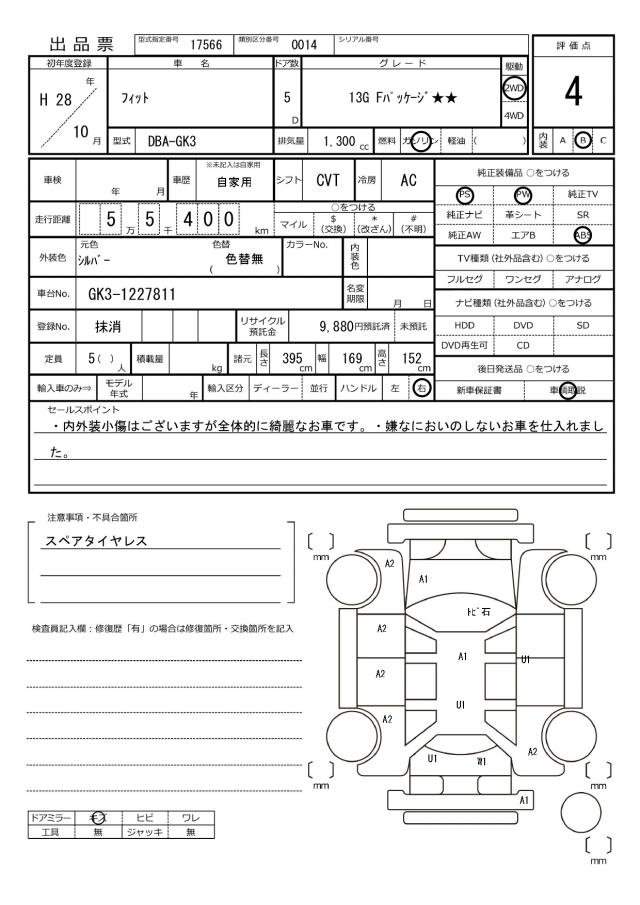 出品票 型式指定番号 17566 類別区分番号 0014 シリアル番号
評価点
4
内装 A B C
初年度登録 車名 ドア数 グレード 駆動
H 28 年 10 月 フィット 5 D 13G Fパッケージ★★ 2WD
4WD
型式 DBA-GK3 排気量 1.300 cc 燃料 ガソリン 軽油 ( )
車検 年 月 車歴 ※未記入は自家用 自家用 シフト CVT 冷房 AC
走行距離 5 5 万 千 4 0 0 km ○をつける
マイル $ (交換) * (改ざん) # (不明)
外装色 元色 シルバー 色替 ( 色替無 ) カラーNo. 内装色
車台No. GK3-1227811 名変期限 月 日
登録No. 抹消 リサイクル預託金 9,880円預託済 未預託
定員 5 ( ) 人 積載量 kg 諸元 長さ 395 cm 幅 169 cm 高さ 152 cm
輸入車のみ⇒ モデル年式 年 輸入区分 ディーラー 並行 ハンドル 左 右
純正装備品 ○をつける
PS PW 純正TV
純正ナビ 革シート SR
純正AW エアB ABS
TV種類 (社外品含む) ○をつける
フルセグ ワンセグ アナログ
ナビ種類 (社外品含む) ○をつける
HDD DVD SD
DVD再生可 CD
後日発送品 ○をつける
新車保証書 車輌取説
セールスポイント
・内外装小傷はございますが全体的に綺麗なお車です。・嫌なにおいのしないお車を仕入れまし
た。
注意事項・不具合箇所
スペアタイヤレス
検査員記入欄：修復歴「有」の場合は修復箇所・交換箇所を記入
ドアミラー キズ ヒビ ワレ
工具 無 ジャッキ 無
mm
mm
A2
A1
トビ石
A2
A1
U1
A2
U1
A2
U1
A2
mm
mm
A1
mm